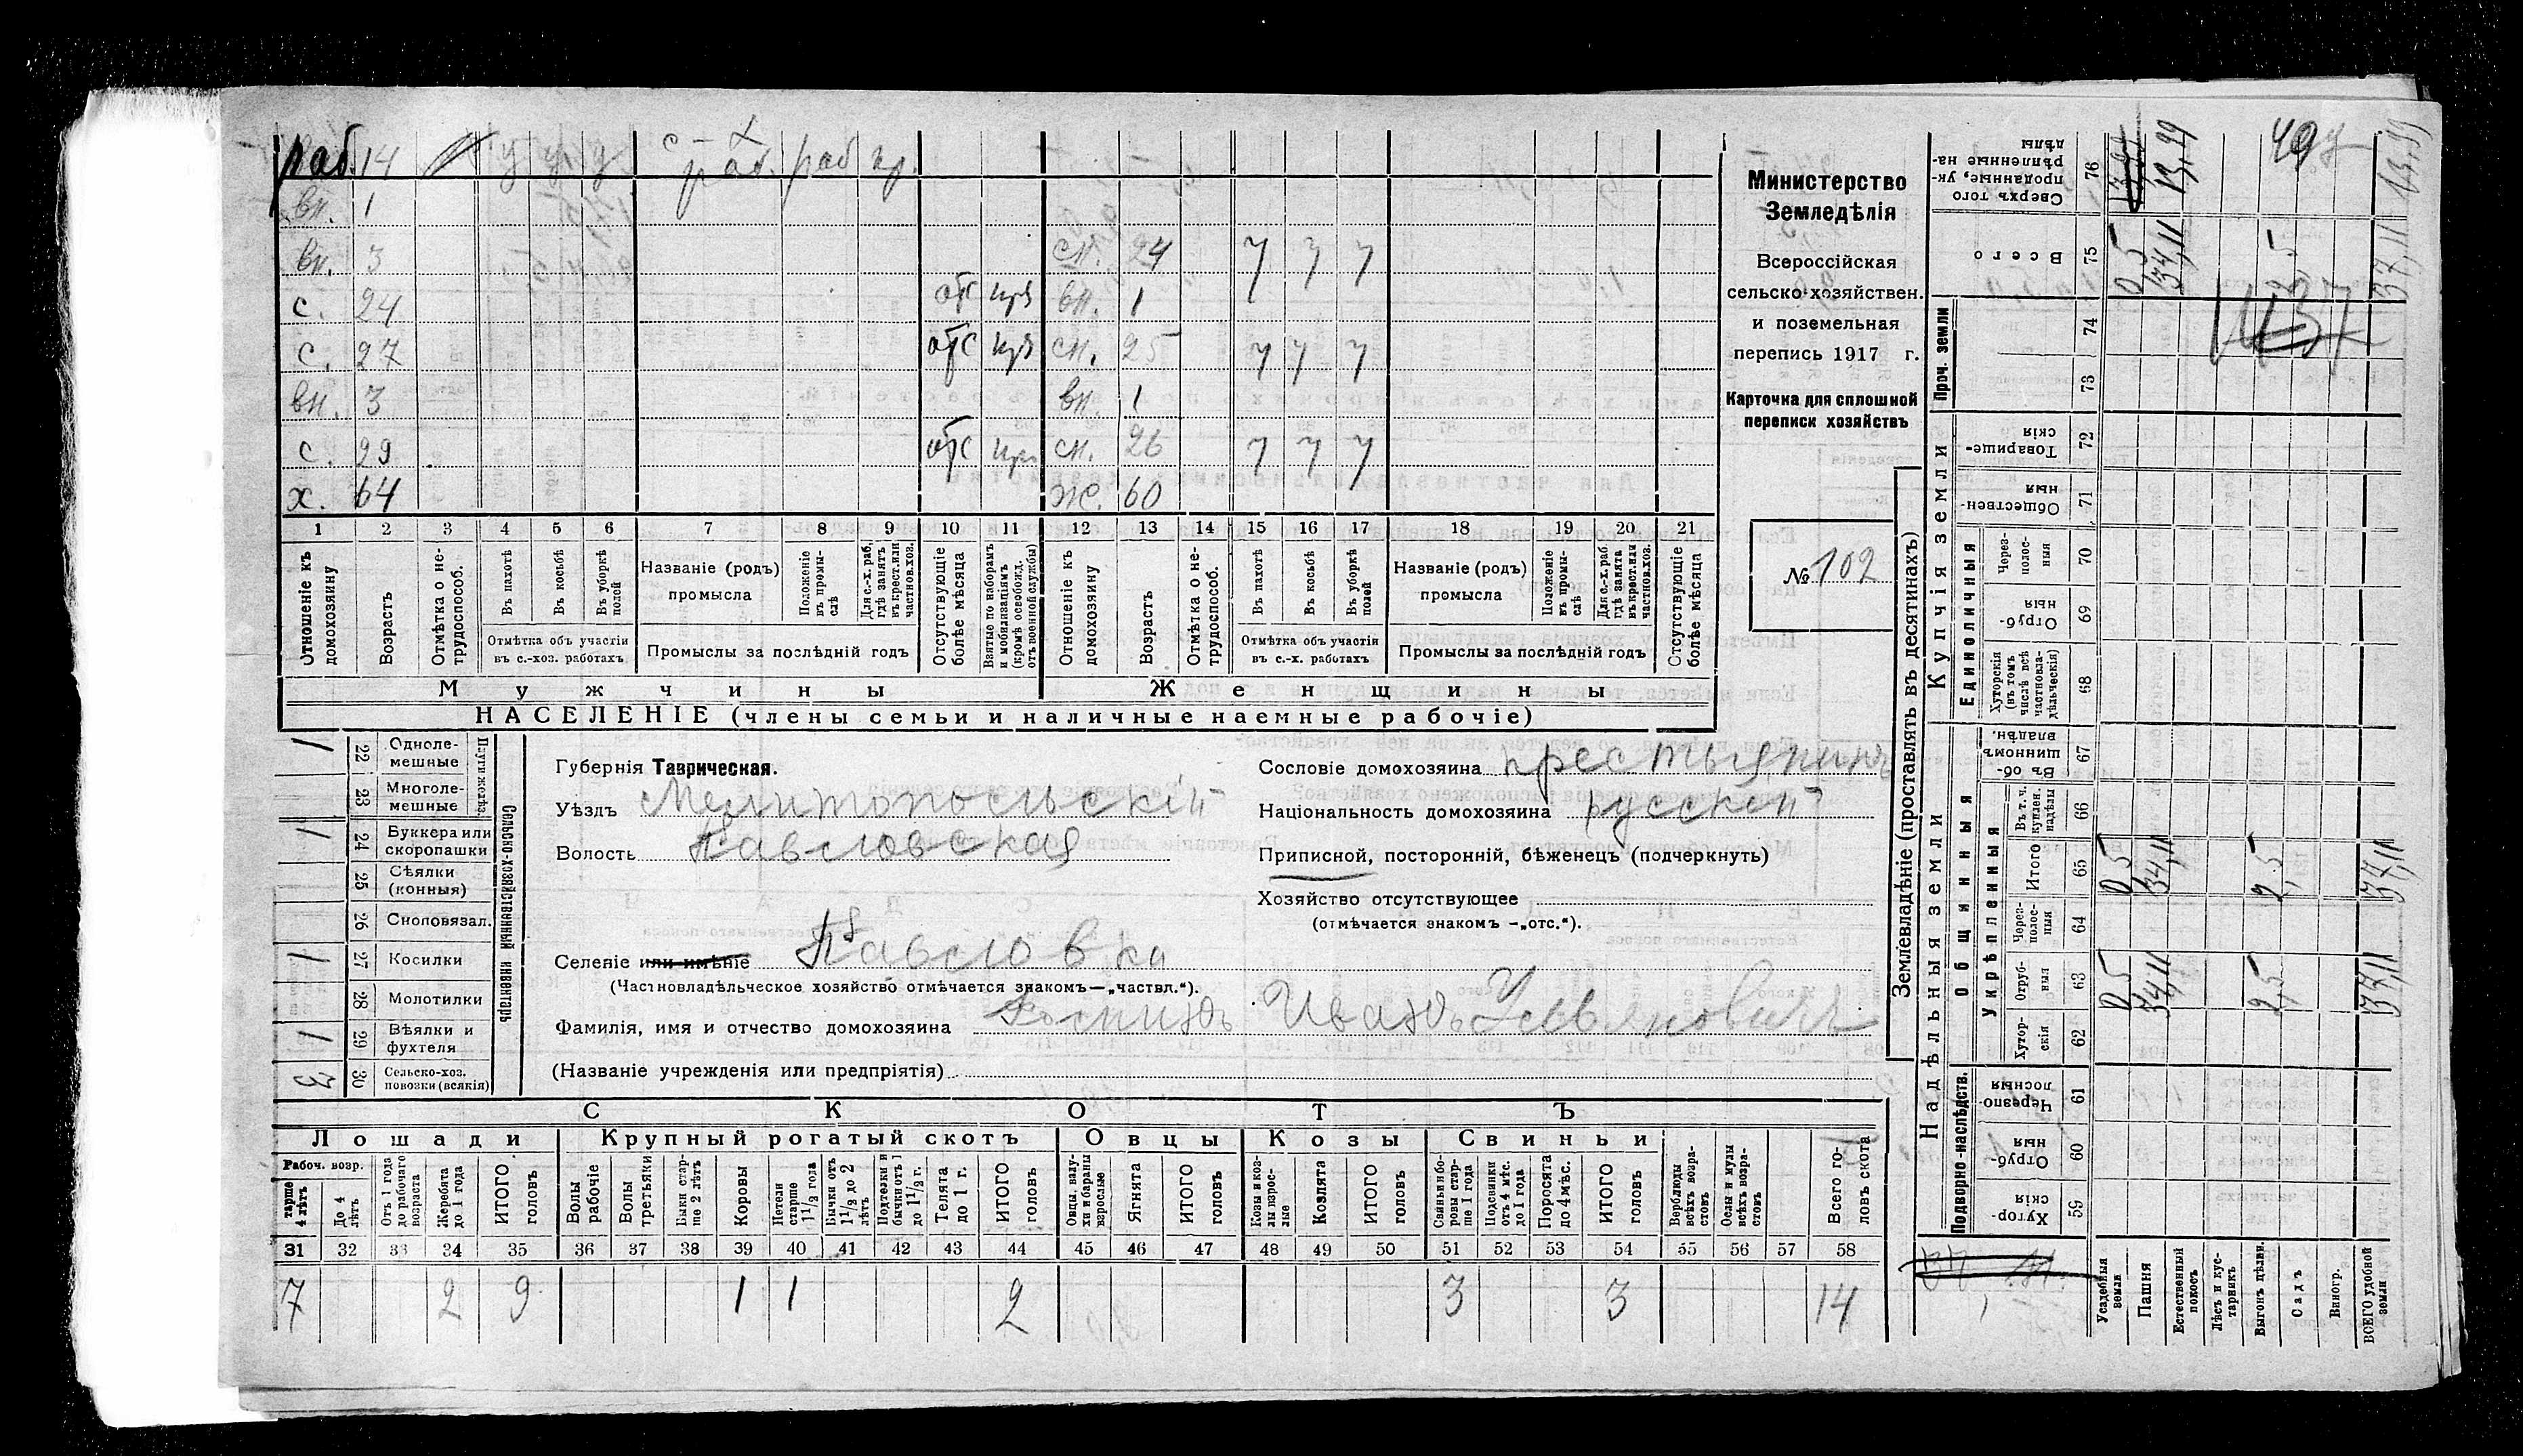 раб. 14 у у у с-х раб. раб кр.
вн. 1
вн. 3 сн. 24 у у у
с. 24 отс прз вн. 1
с. 27 отс прз сн. 25 у у у
вн. 3 вн. 1
с. 29 отс прз сн. 26 у у у
х. 64 ж. 60
1 2 3 4 5 6 7 8 9 10 11 12 13 14 15 16 17 18 19 20 21
Отношеніе къ домохозяину
Возрастъ
Отмѣтка о не-трудоспособ.
Въ пахотѣ
Въ косьбѣ
Въ уборкѣ полей
Отмѣтка объ участіи въ с.-хоз. работахъ
Названіе (родъ) промысла
Положеніе въ промы-слѣ
Для с.-х. раб. гдѣ занятъ въ крест. или частнов. хоз.
Промыслы за послѣдній годъ
Отсутствующіе болѣе мѣсяца
Взятые по наборамъ и мобилизаціямъ (кромѣ освобожд. отъ военной службы)
Отношеніе къ домохозяину
Возрастъ
Отмѣтка о не-трудоспособ.
Въ пахотѣ
Въ косьбѣ
Въ уборкѣ полей
Отмѣтка объ участіи въ с.-х. работахъ
Названіе (родъ) промысла
Положеніе въ промы-слѣ
Для с.-х. раб. гдѣ занята въ крест. или частнов. хоз.
Промыслы за послѣдній годъ
Отсутствующіе болѣе мѣсяца
Мужчины Женщины
НАСЕЛЕНІЕ (члены семьи и наличные наемные рабочіе)
Министерство
Земледѣлія
Всероссійская
сельско-хозяйствен.
и поземельная
перепись 1917 г.
Карточка для сплошной
переписи хозяйствъ
№ 102
Сельско-хозяйственный инвентарь
Плуги желѣз.
22 Одноле-мешные 1
23 Многоле-мешные
24 Буккера или скоропашки 1
25 Сѣялки (конныя)
26 Сноповязал.
27 Косилки 1
28 Молотилки
29 Вѣялки и фухтеля 1
30 Сельско-хоз. повозки (всякія) 3
Губернія Таврическая.
Уѣздъ Мелитопольскій
Волость Павловская
Селеніе или имѣніе Павловка
(Частновладѣльческое хозяйство отмѣчается знакомъ—„частвл.“).
Фамилія, имя и отчество домохозяина Иванъ Ульяновичъ
(Названіе учрежденія или предпріятія)
Сословіе домохозяина крестьянинъ
Національность домохозяина русскій
Приписной, посторонній, бѣженецъ (подчеркнуть)
Хозяйство отсутствующее
(отмѣчается знакомъ —„отс.“).
СКОТЪ
Лошади Крупный рогатый скотъ Овцы Козы Свиньи
Рабоч. возр.
тарше 4 лѣтъ
До 4 лѣтъ
Отъ 1 года до рабочаго возраста
Жеребята до 1 года
ИТОГО головъ
Волы рабочіе
Волы третьяки
Быки стар-ше 2 лѣтъ
Коровы
Нетели старше 1½ года
Бычки отъ 1½ до 2 лѣтъ
Подтелки и бычки отъ 1 до 1½ г.
Телята до 1 г.
ИТОГО головъ
Овцы, валу-хи и бараны взрослые
Ягнята
ИТОГО головъ
Козы и коз-лы взрос-лые
Козлята
ИТОГО головъ
Свиньи и бо-ровы стар-ше 1 года
Подсвинки отъ 4 мѣс. до 1 года
Поросята до 4 мѣс.
ИТОГО головъ
Верблюды всѣхъ возра-стовъ
Ослы и мулы всѣхъ возра-стовъ
Всего го-ловъ скота
31 32 33 34 35 36 37 38 39 40 41 42 43 44 45 46 47 48 49 50 51 52 53 54 55 56 57 58
7 2 9 1 1 2 3 3 14
Землевладѣніе (проставлять въ десятинахъ)
Надѣльныя земли Купчія земли Проч. земли
Подворно-наслѣдств.
Общинныя
Укрѣпленныя
Единоличныя
Сверхъ того проданные, ук-рѣпленные на-дѣлы 76 13,99 49 13,99
Всего 75 0,5 34,11 2,5 37,11
74
73
Товарище-скія 72
Обществен-ныя 71
Через-полос-ныя 70
Отруб-ныя 69
Хуторскія (въ томъ числѣ всѣ частновла-дѣльческія) 68
Въ об-щинномъ владѣн. 67
Въ т. ч. куплен. надѣлы 66
Итого 65 0,5 34,11 2,5 37,11
Через-полос-ныя 64
Отруб-ныя 63 0,5 34,11 2,5 37,11
Хутор-скія 62
Черезпо-лосныя 61
Отруб-ныя 60
Хутор-скія 59
Усадебныя земли
Пашня
Естественный покосъ
Лѣсъ и кус-тарникъ
Выгонъ цѣлин.
Садъ
Виногр.
ВСЕГО удобной земли